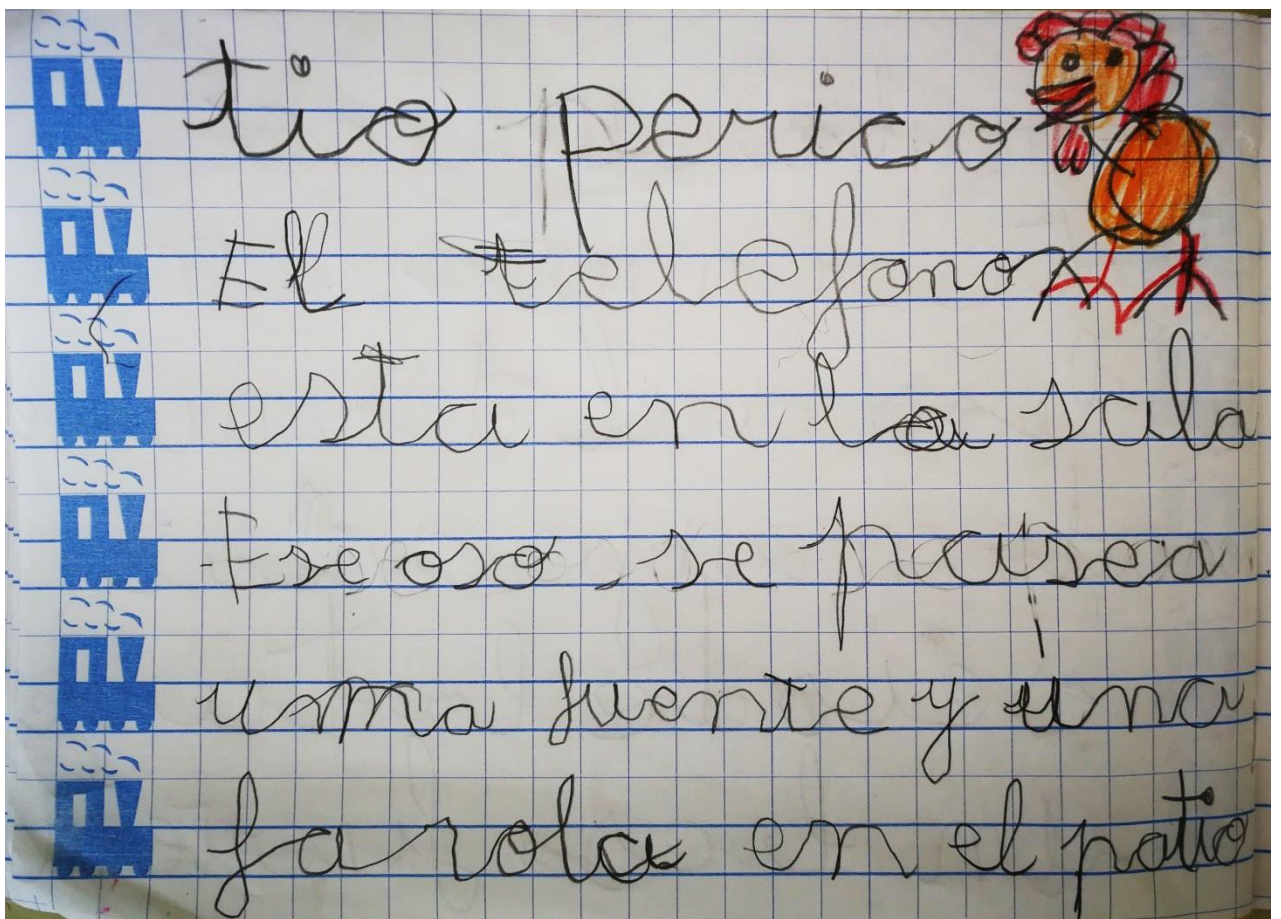 tio perico
El telefono
esta en la sala
Ese oso se pasea
uma fuente y una
farola en el patio